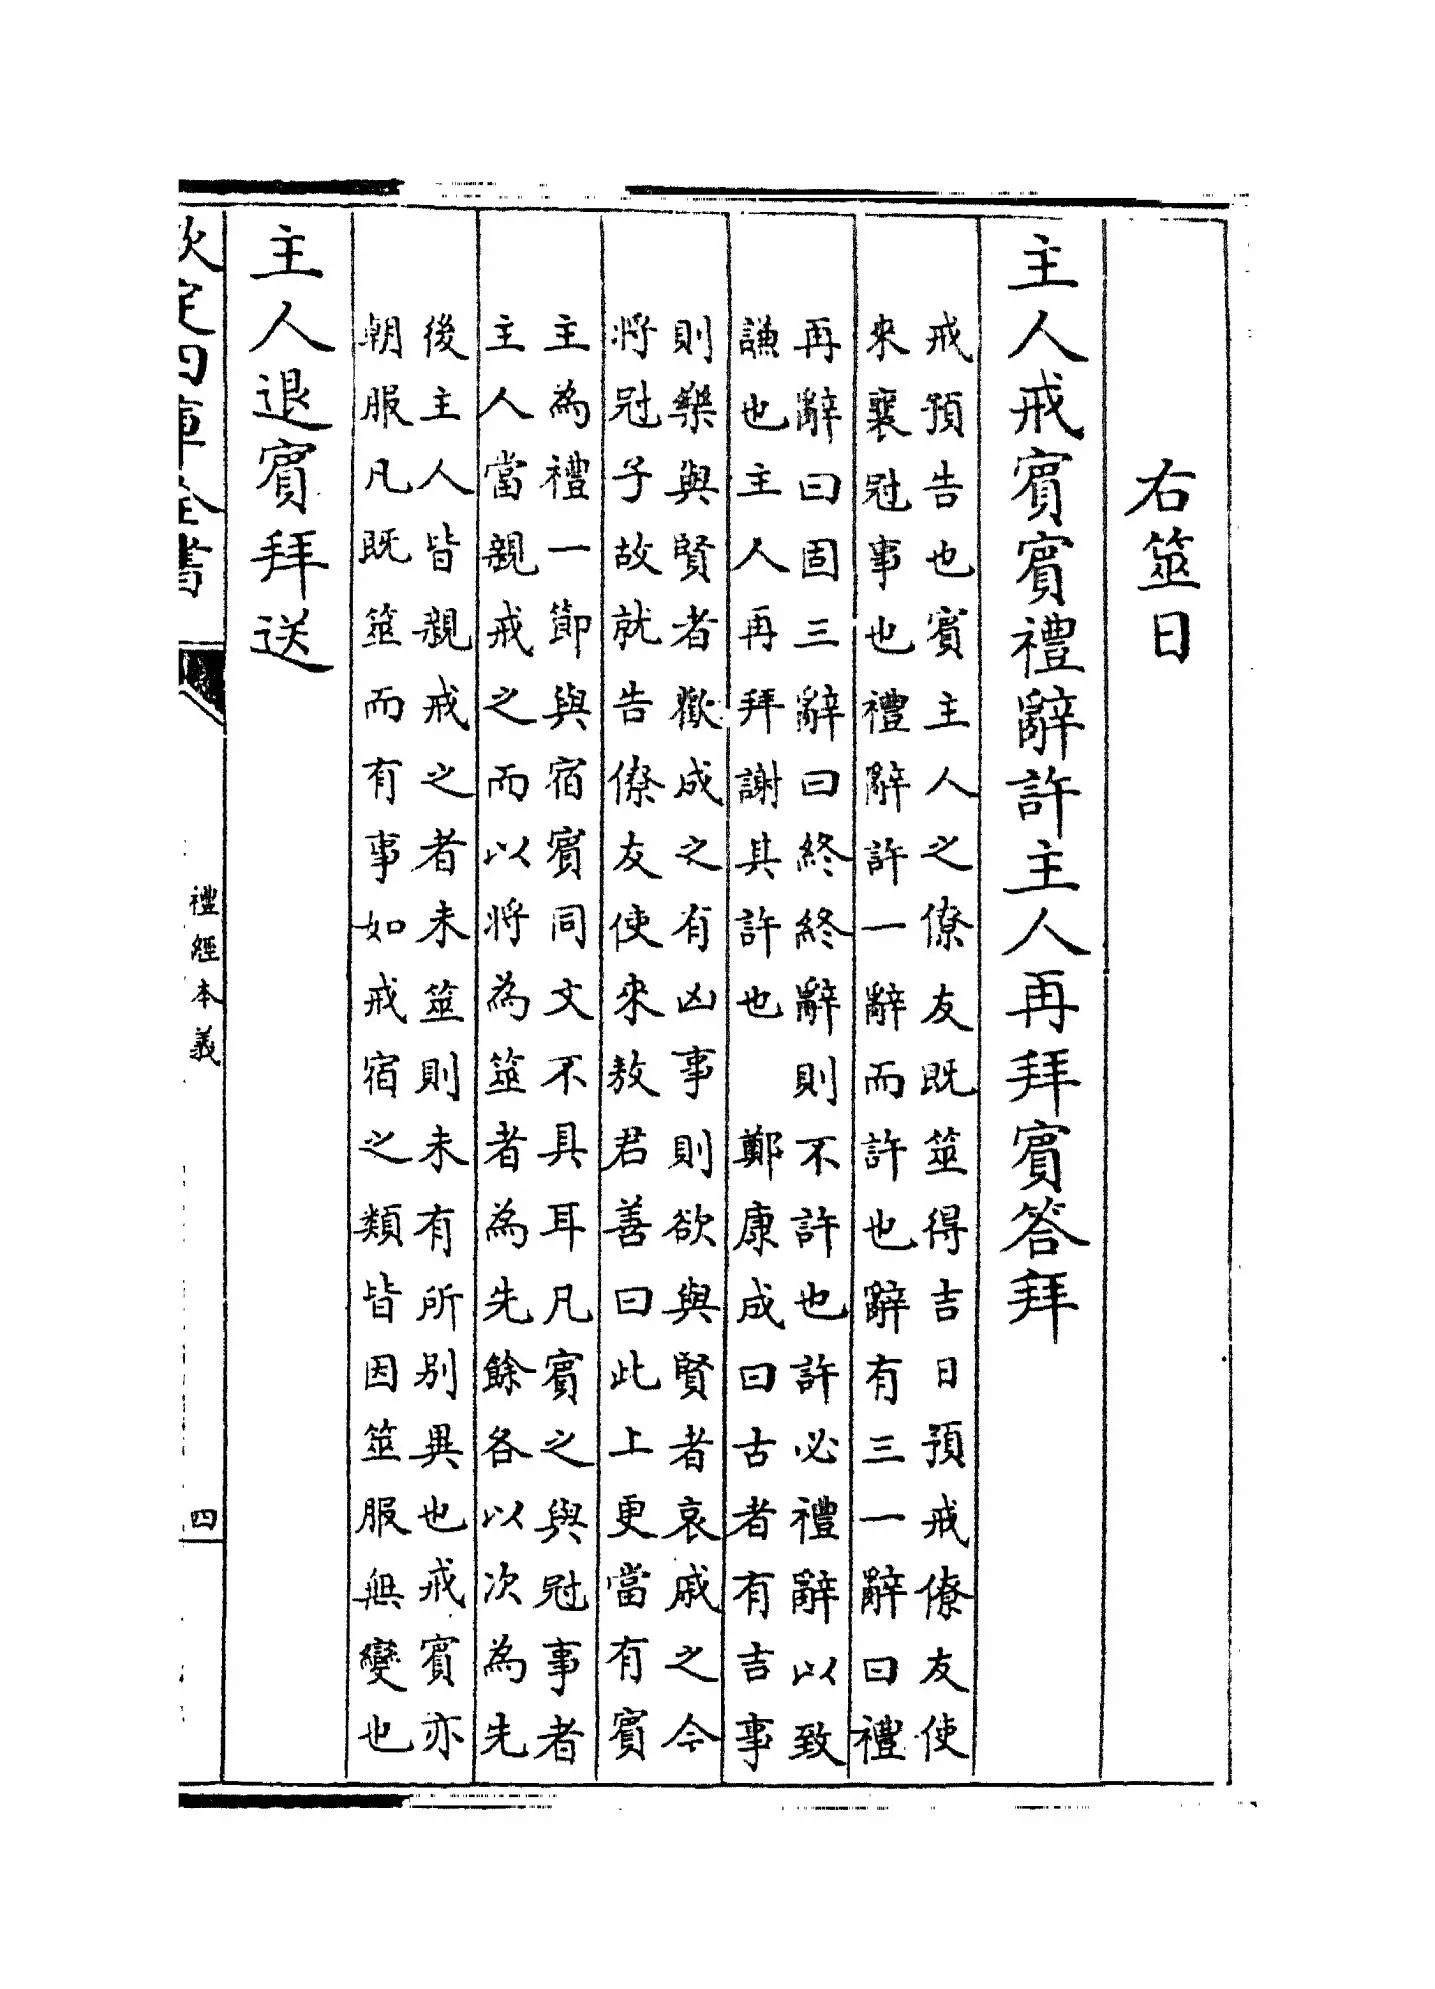 右筮日
主人戒賓賓禮辭許主人再拜賓答拜
戒預告也賓主人之僚友既筮得吉日預戒僚友使
來襄冠事也禮辭許一辭而許也辭有三一辭曰禮
再辭曰固三辭曰終終辭則不許也許必禮辭以致
謙也主人再拜謝其許也　鄭康成曰古者有吉事
則樂與賢者歡成之有凶事則欲與賢者哀戚之今
將冠子故就告僚友使來敖君善曰此上更當有賓
主為禮一節與宿賓同文不具耳凡賓之與冠事者
主人當親戒之而以將為筮者為先餘各以次為先
後主人皆親戒之者未筮則未有所别異也戒賓亦
朝服凡既筮而有事如戒宿之類皆因筮服無變也
主人退賓拜送
欽定四庫全書
禮經本義
四